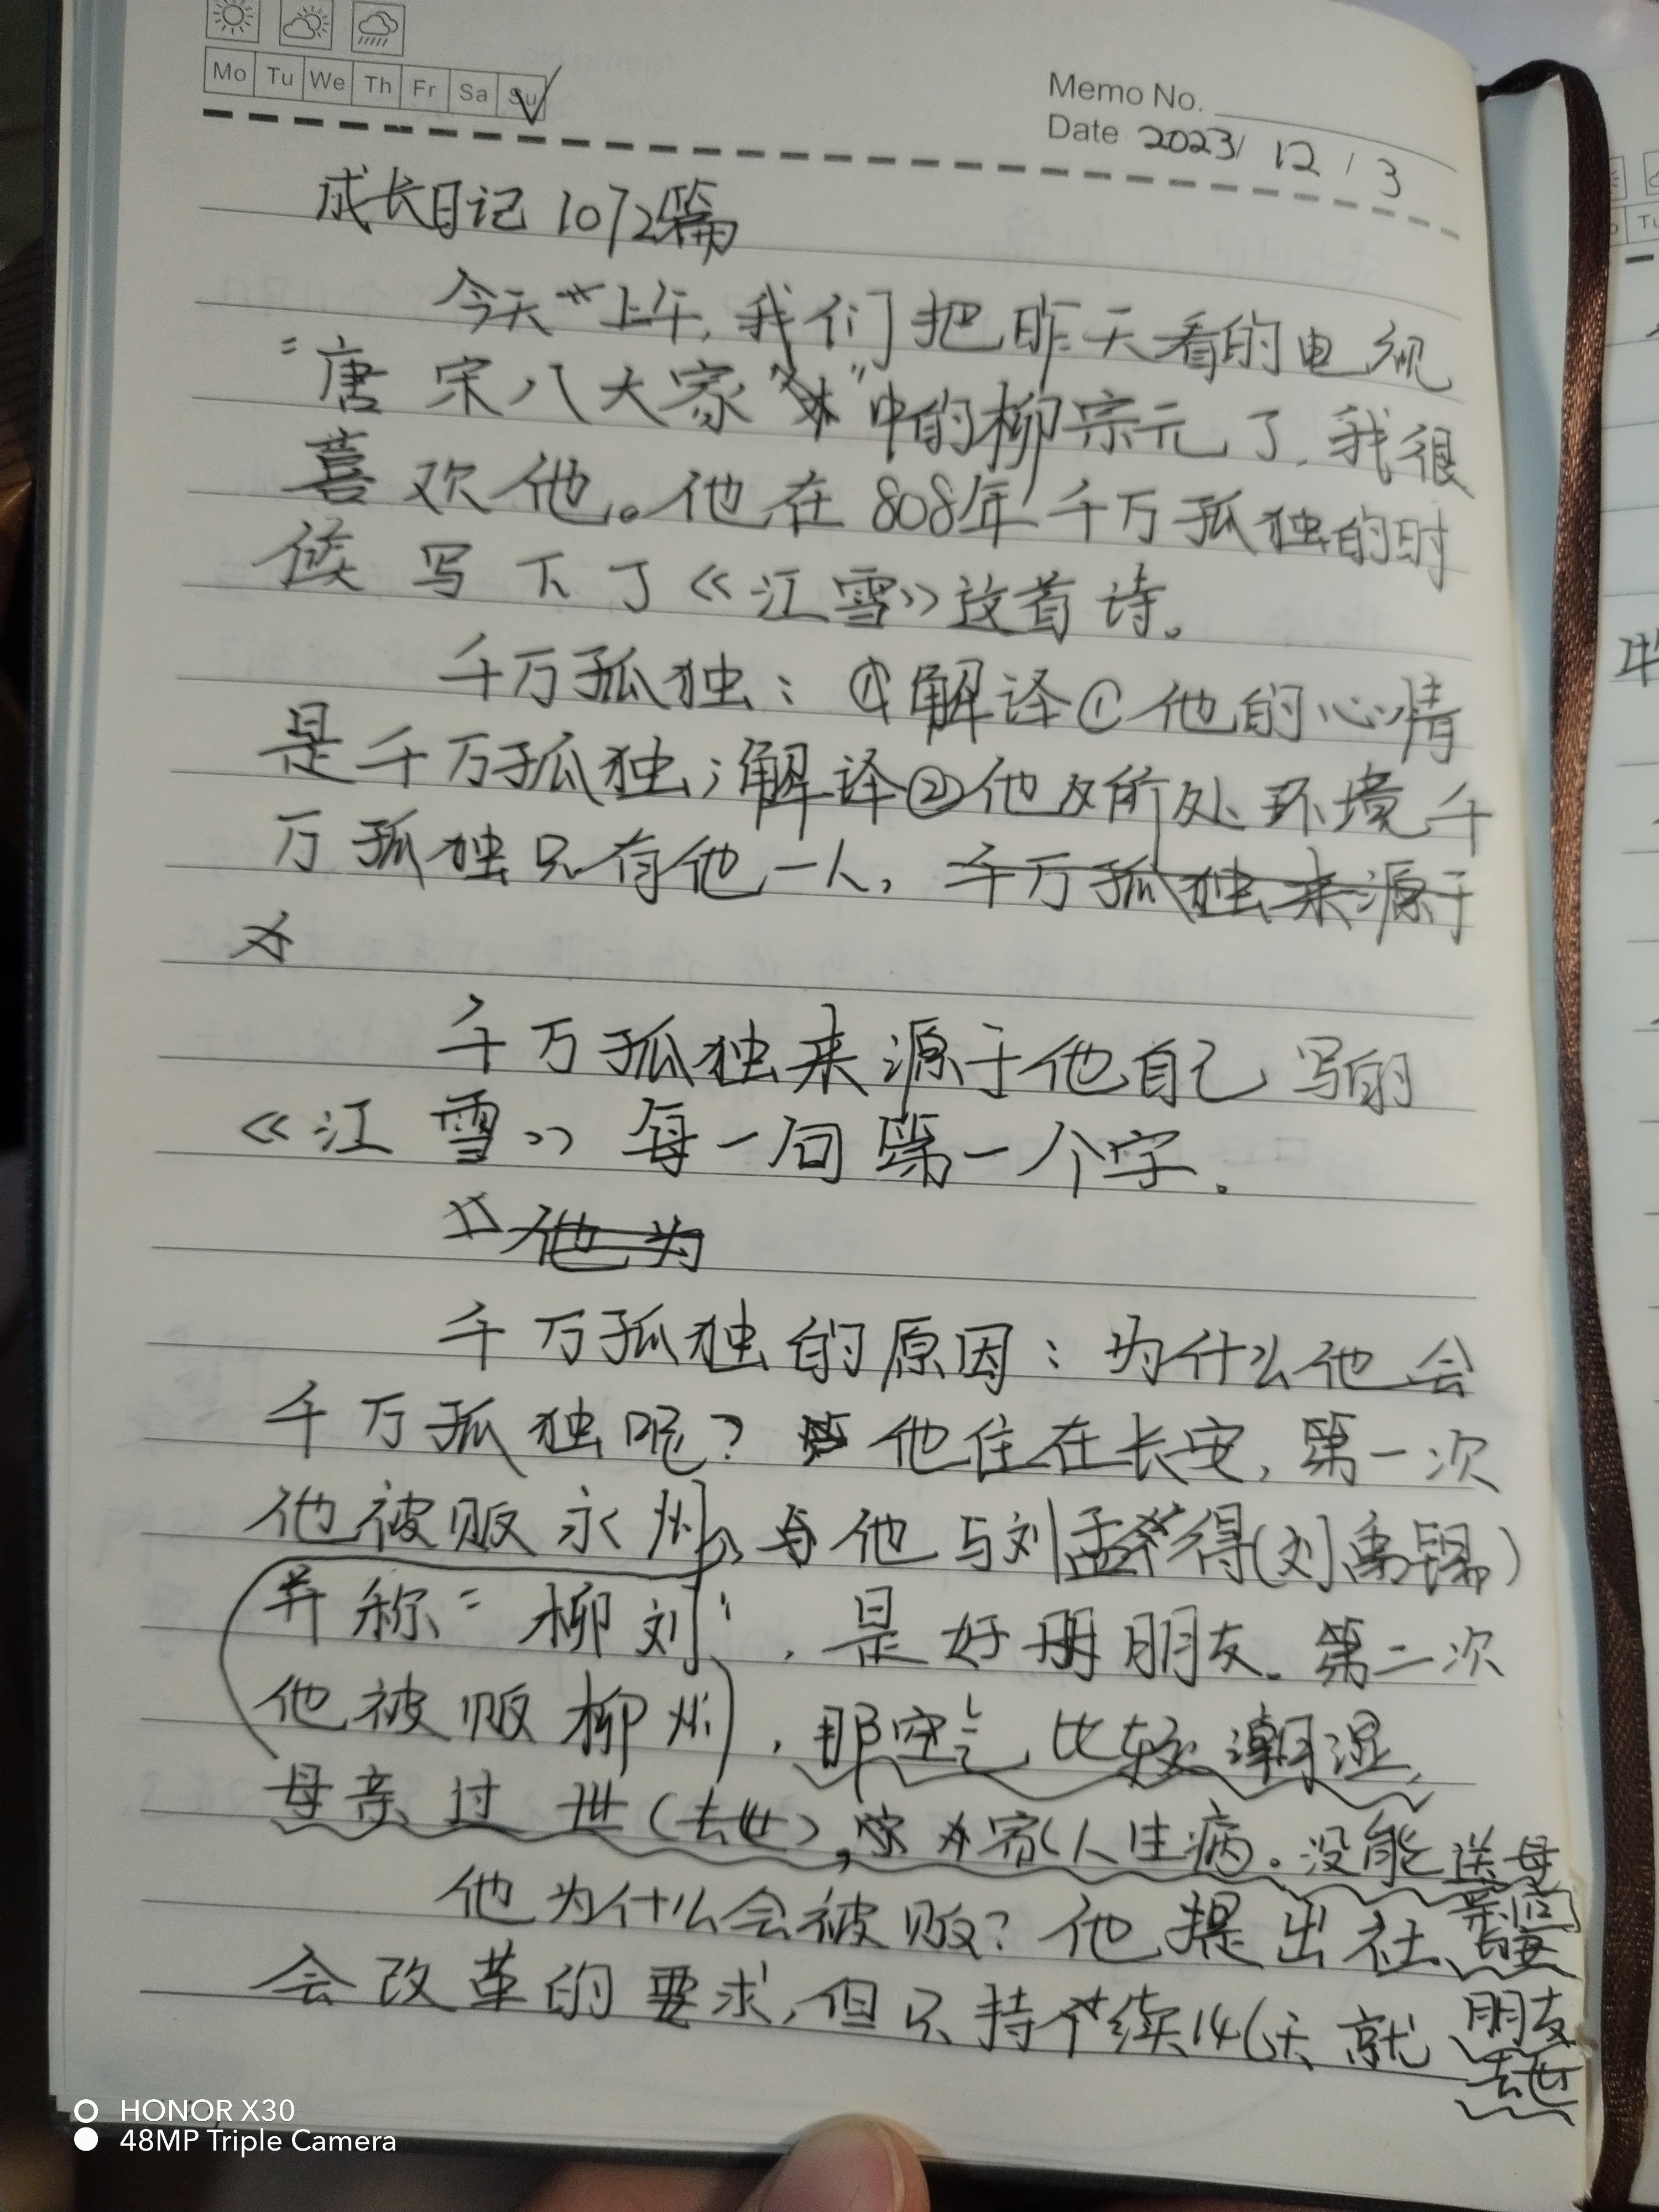 Mo Tu We Th Fr Sa Su
Memo No.
Date 2023/ 12 / 3
成长日记 1072篇
今天上午,我们把昨天看的电视
"唐宋八大家"中的柳宗元了,我很
喜欢他。他在808年千万孤独的时
候写下了《江雪》这首诗。
千万孤独:解译①他的心情
是千万孤独;解译②他所处环境千
万孤独只有他一人,千万孤独来源于
千万孤独来源于他自己写的
《江雪》每一句第一个字.
他为
千万孤独的原因:为什么他会
千万孤独呢?他住在长安,第一次
他被贩永州,他与刘孟得(刘禹锡)
并称"柳刘",是好朋友.第二次
他被贩柳州,那空气比较潮湿,
母亲过世(去世),家人生病.没能送母
亲回
长安
他为什么会被贩?他提出社
会改革的要求,但只持续146天就
朋友
去世
HONOR X30
48MP Triple Camera